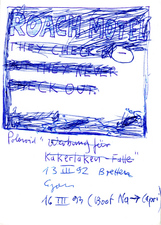 ROACH MOTEL
THEY CHECK IN
THEY NEVER
CHECK OUT.
Polaroid "Werbung für
Kakerlaken-Falle"
13 III 92 Bretten
16 III 93 (Boot Na → Capri)